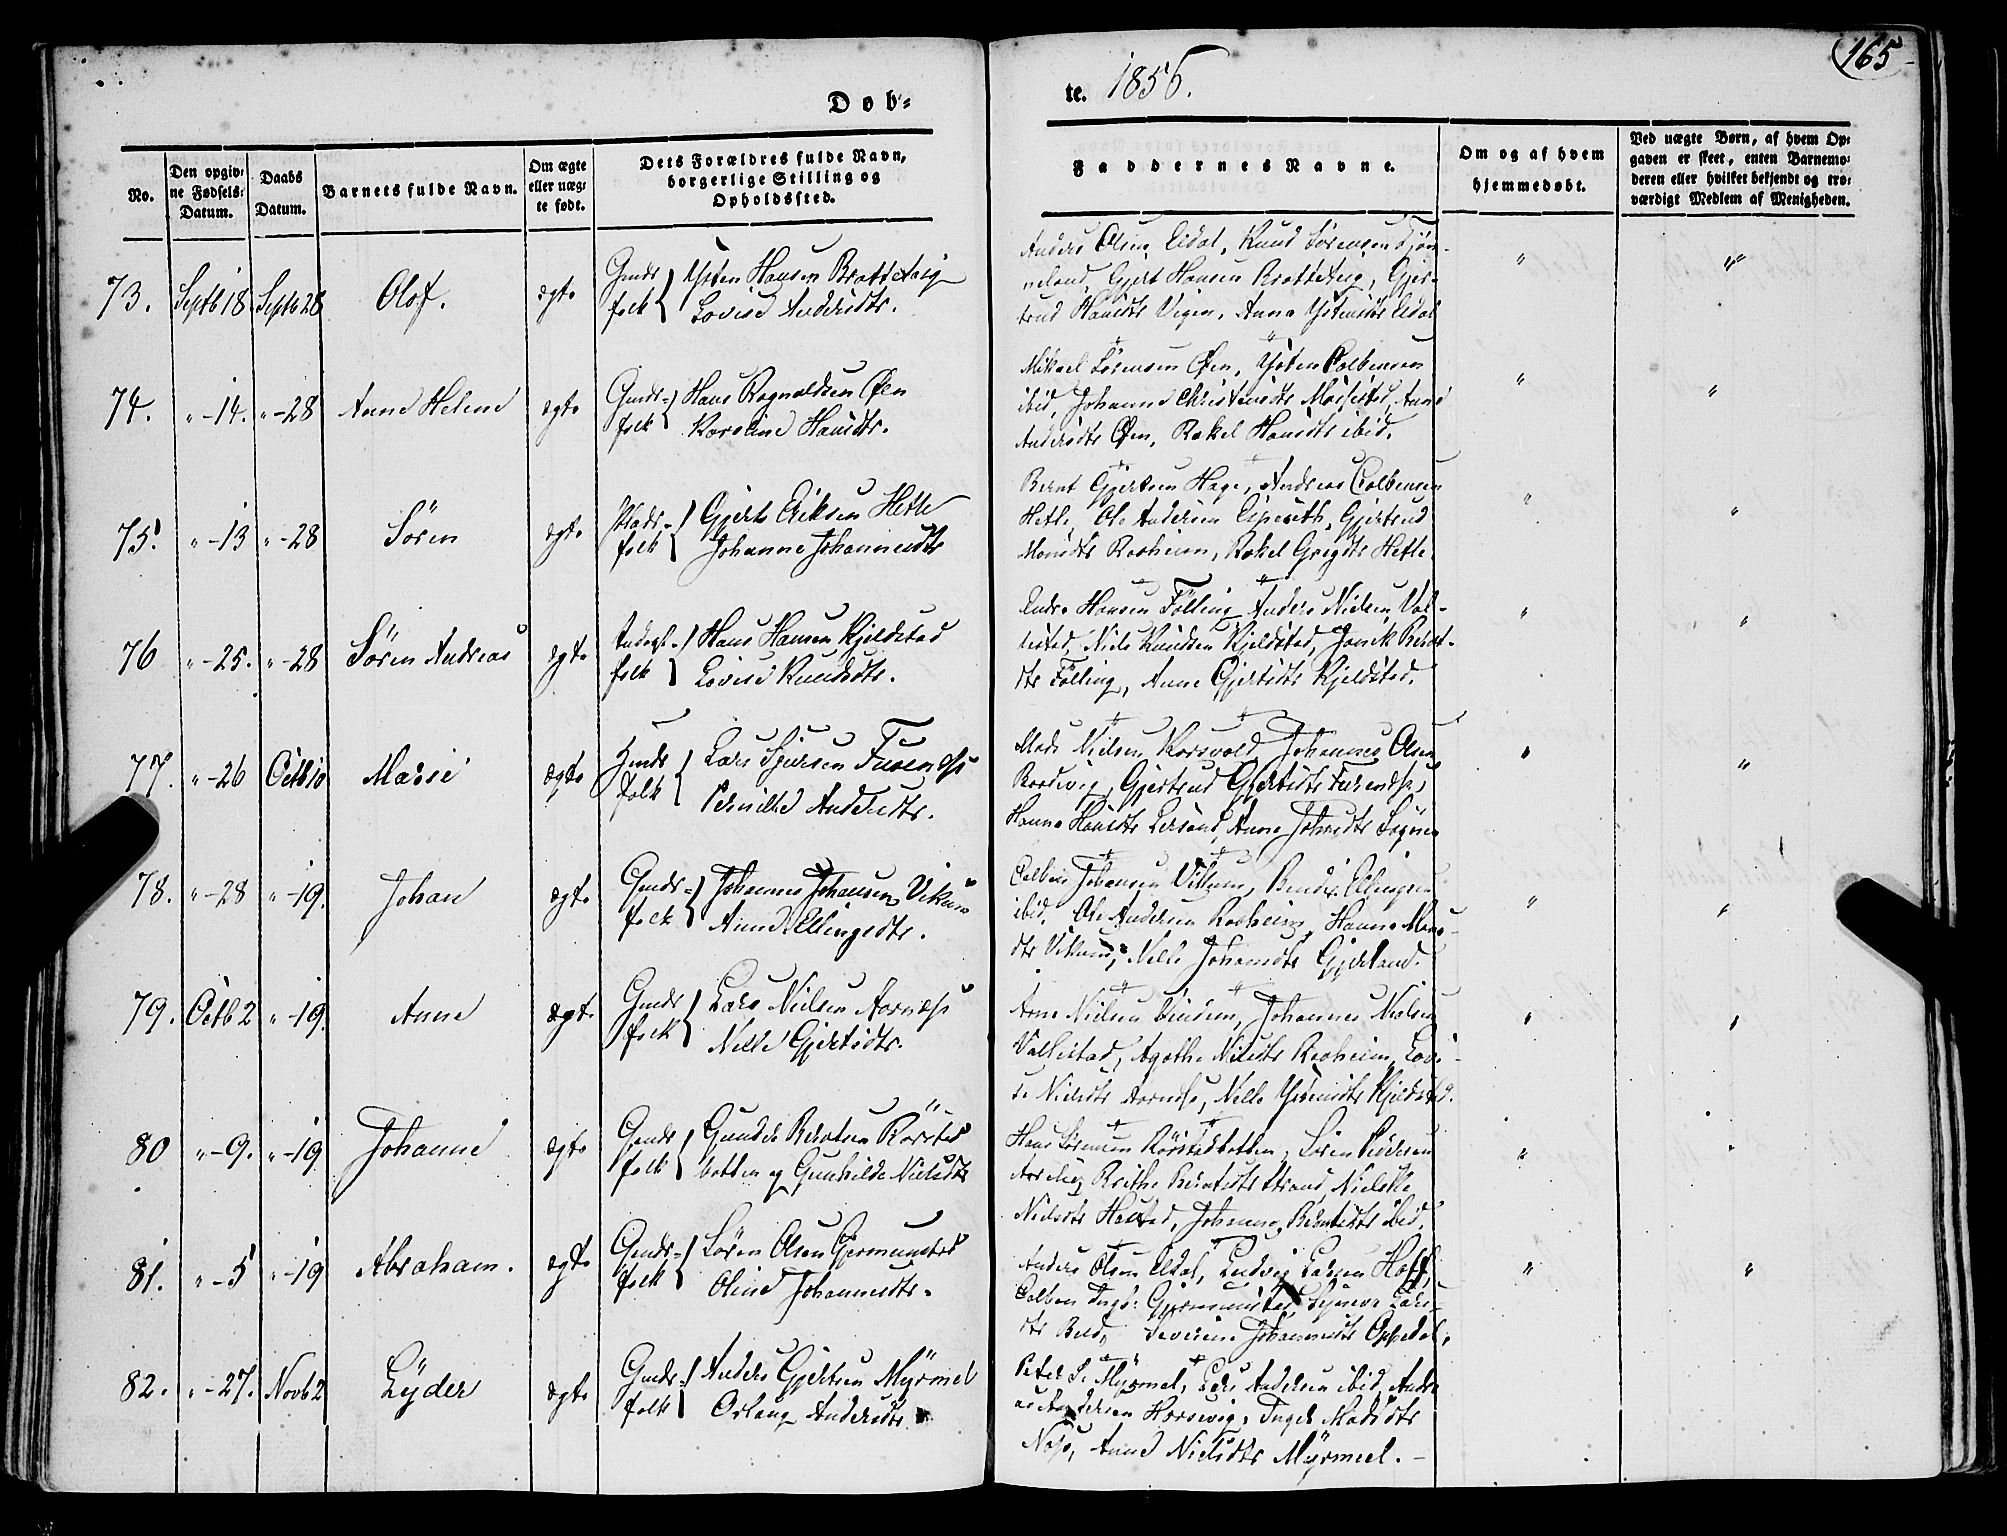 165
Døb-
te. 1856.
No.
Den opgiv-
ne Fødsels-
Datum.
Daabs
Datum.
Barnets fulde Navn.
Om ægte
eller uæg-
te født.
Dets Forældres fulde Navn,
borgerlige Stilling og
Opholdssted.
Faddernes Navne.
Om og af hvem
hjemmedøbt.
Ved uægte Børn, af hvem Op-
gaven er skeet, enten Barnemo-
deren eller hvilket bekjendt og tro-
værdigt Medlem af Menigheden.
73. Septb 18 Septb 28 Olof. ægte Gmds folk Ysten Hansen Bratteteig
Lovise Andersdtr.
Anders Olsen Eidal, Knud Sørensen
Gjert Hansen Bratteteig, Gjer-
trud Hansdtr Vigen, Anna Ystensdtr Eidal
74. " -14. " -28 Anne Helene ægte Gmds- folk Hans Rognaldsen Øen
Karoline Hansdtr.
Mikael Sørensen Øen, Ysten Colbensen
ibid, Johanne Christensdtr Anne
Andersdtr Øen, Rakel Hansdtr ibid.
75. " -13 " -28 Sören ægte Plads- folk Gjert Eriksen Hetle
Johanne Johannesdtr
Bernt Gjertsen Hage, Andreas Colbensen
Hetle, Ole Andersen Espeseth, Gjertrud
Monsdtr Raaheim, Rakel Gregdtr Hetle.
76 " -25. " -28 Sören Andreas ægte folk Hans Hansen Kjeldstad
Lovise Knudsdtr.
Endre Hansen Fölling Anders Nielsen Val-
lestad, Niels Knudsen Kjeldstad, Bernt-
dtr Fölling, Anne Gjertsdtr Kjeldstad.
77. " -26 Octb 10 Massi ægte Gmds folk Lars Sjursen Furenæs
Pernille Andersdtr.
Mads Nielsen Korsvold, Johannes Olsen
Gjertrud Gjertsdtr Furenæs,
Hanna Hansdtr Anna Johnsdtr
78. " -28 " -19. Johan ægte Gmds- folk Johannes Johansen Vikum
Anne Ellingsdtr.
Colben Johansen Vikum, Bendix Ellingsen
ibid, Ole Andersen Raaheim, Hanna Mons-
dtr Vikum, Nelle Johansdtr Gjerland.
79. Octb 2 " -19. Anne ægte Gmds folk Lars Nielsen Aarnæs
Nelle Gjertsdtr.
Arne Nielsen Johannes Nielsen
Vallestad, Agathe Nilsdtr Raaheim, Lovi-
se Nielsdtr Aarnæs, Nelle Ystensdtr Kjeldstad.
80 " -9. " -19. Johanne ægte Gmds folk Gunder Berntsen Rörstad
botten og Gunhilde Nielsdtr
Hans Sørensen Rörstadbotten, Sören Pedersen
Brithe Berntsdtr Strand, Nielslle
Nielsdtr Halstad, Johanne Berntsdtr ibid.
81. " -5 " -19 Abraham. ægte Gmds- folk Sören Olsen Gjermunstad
Oline Johannesdtr.
Anders Olsen Eldal, Ludvig Larsen Hoff,
Colben Gjermunstad, Syneva Lars-
dtr Severine Johannesdtr Oppedal.
82. " -27. Novb 2 Lÿder ægte Gmds- folk Anders Gjertsen Mÿrmel
Orlaug Andersdtr
Peter Mÿrmel, Lars Andersen ibid, Andre
as Andersen Horsevig, Inger Madsdtr
Anne Nielsdtr Mÿrmel. -